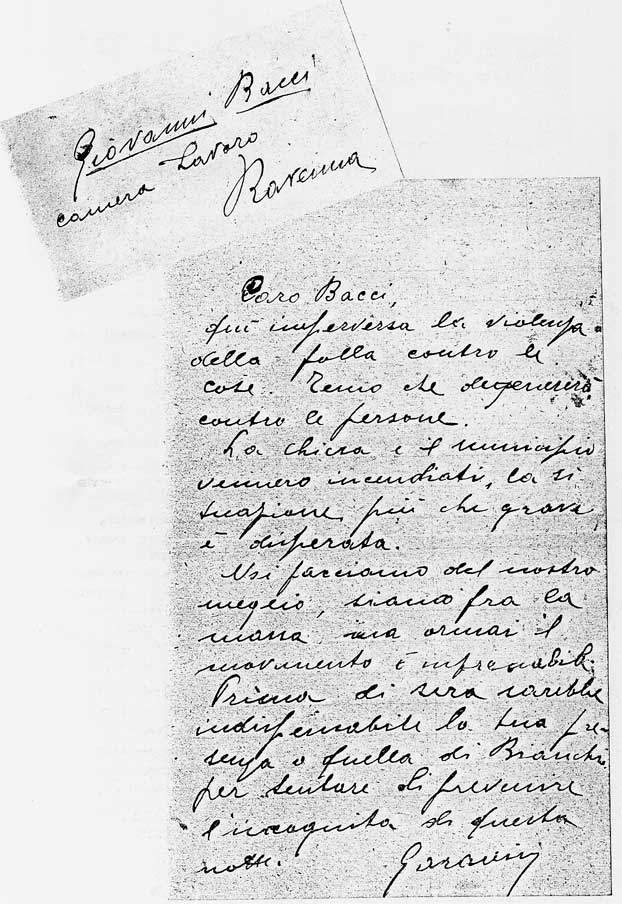 Giovanni Bacci
camera Lavoro
Ravenna
Caro Bacci,
qui imperversa la violenza
della folla contro le
cose. Temo che degenererà
contro le persone.
La chiesa e il municipio
vennero incendiati, la si
tuazione più che grave
è disperata.
Noi facciamo del nostro
meglio, siamo fra la
massa, ma ormai il
movimento è infrenabile.
Prima di sera sarebbe
indispensabile la tua pre-
senza o quella di Bianchi
per tentare di prevenire
l'incognita di questa
notte.
Garavini